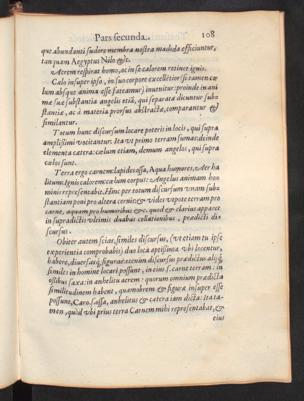 Pars secunda. 108
que abundanti sudore membra nostra madida efficiuntur,
tanquam Aegyptus Nilo &c.
Aerem respirat homo, ac in se calorem retinet ignis.
Cælo insuper ipso, in suo corpore excellētior
lum absque anima esse fateamur) inuenitur: proinde in ani
mæ suæ substantia angelis etiā, qui separatæ dicuntur sub-
stantiæ, ac à materia prorsus abstractæ, comparantur &
similantur.
Totum hunc discursum locare poteris in locis, qui supra
amplissimi vocitantur. Ita vt primo terram sumas: deinde
elementa cætera: cælum etiam, demum angelos, qui supra
cælos sunt.
Terra ergo carnem: lapides ossa, Aqua humores, Aer ha
litum: Ignis calorem: cælum corpus: Angelus animam ho-
mini repræsentabit. Hinc per totum discursum vnam sub-
stantiam poni pro altera cernis: & vides vtpote terram pro
carne, aquam pro humoribus &c. quod & clarius apparet
in supradictis vltimis duabus collationibus, prædicti di-
scursus.
Obiter autem scias, similes discursus, (vt etiam tu ipse
experientia comprobabis) dua loca aptissima vbi locentur,
habere, diuersasq; figuras: etenim discursus prædictus alijq;
similes in homine locari possunt, in eius s. carne terram: in
ossibus saxa: in anhelitu aerem: quorum omnium prædicta
similitudinem habent, quamobrem & figuræ insuper esse
possunt, Caro, saxa, anhelitus & cætera iam dicta: Ita ta-
men, quòd vbi prius terra Carnem mihi repræsentabat, &
eius